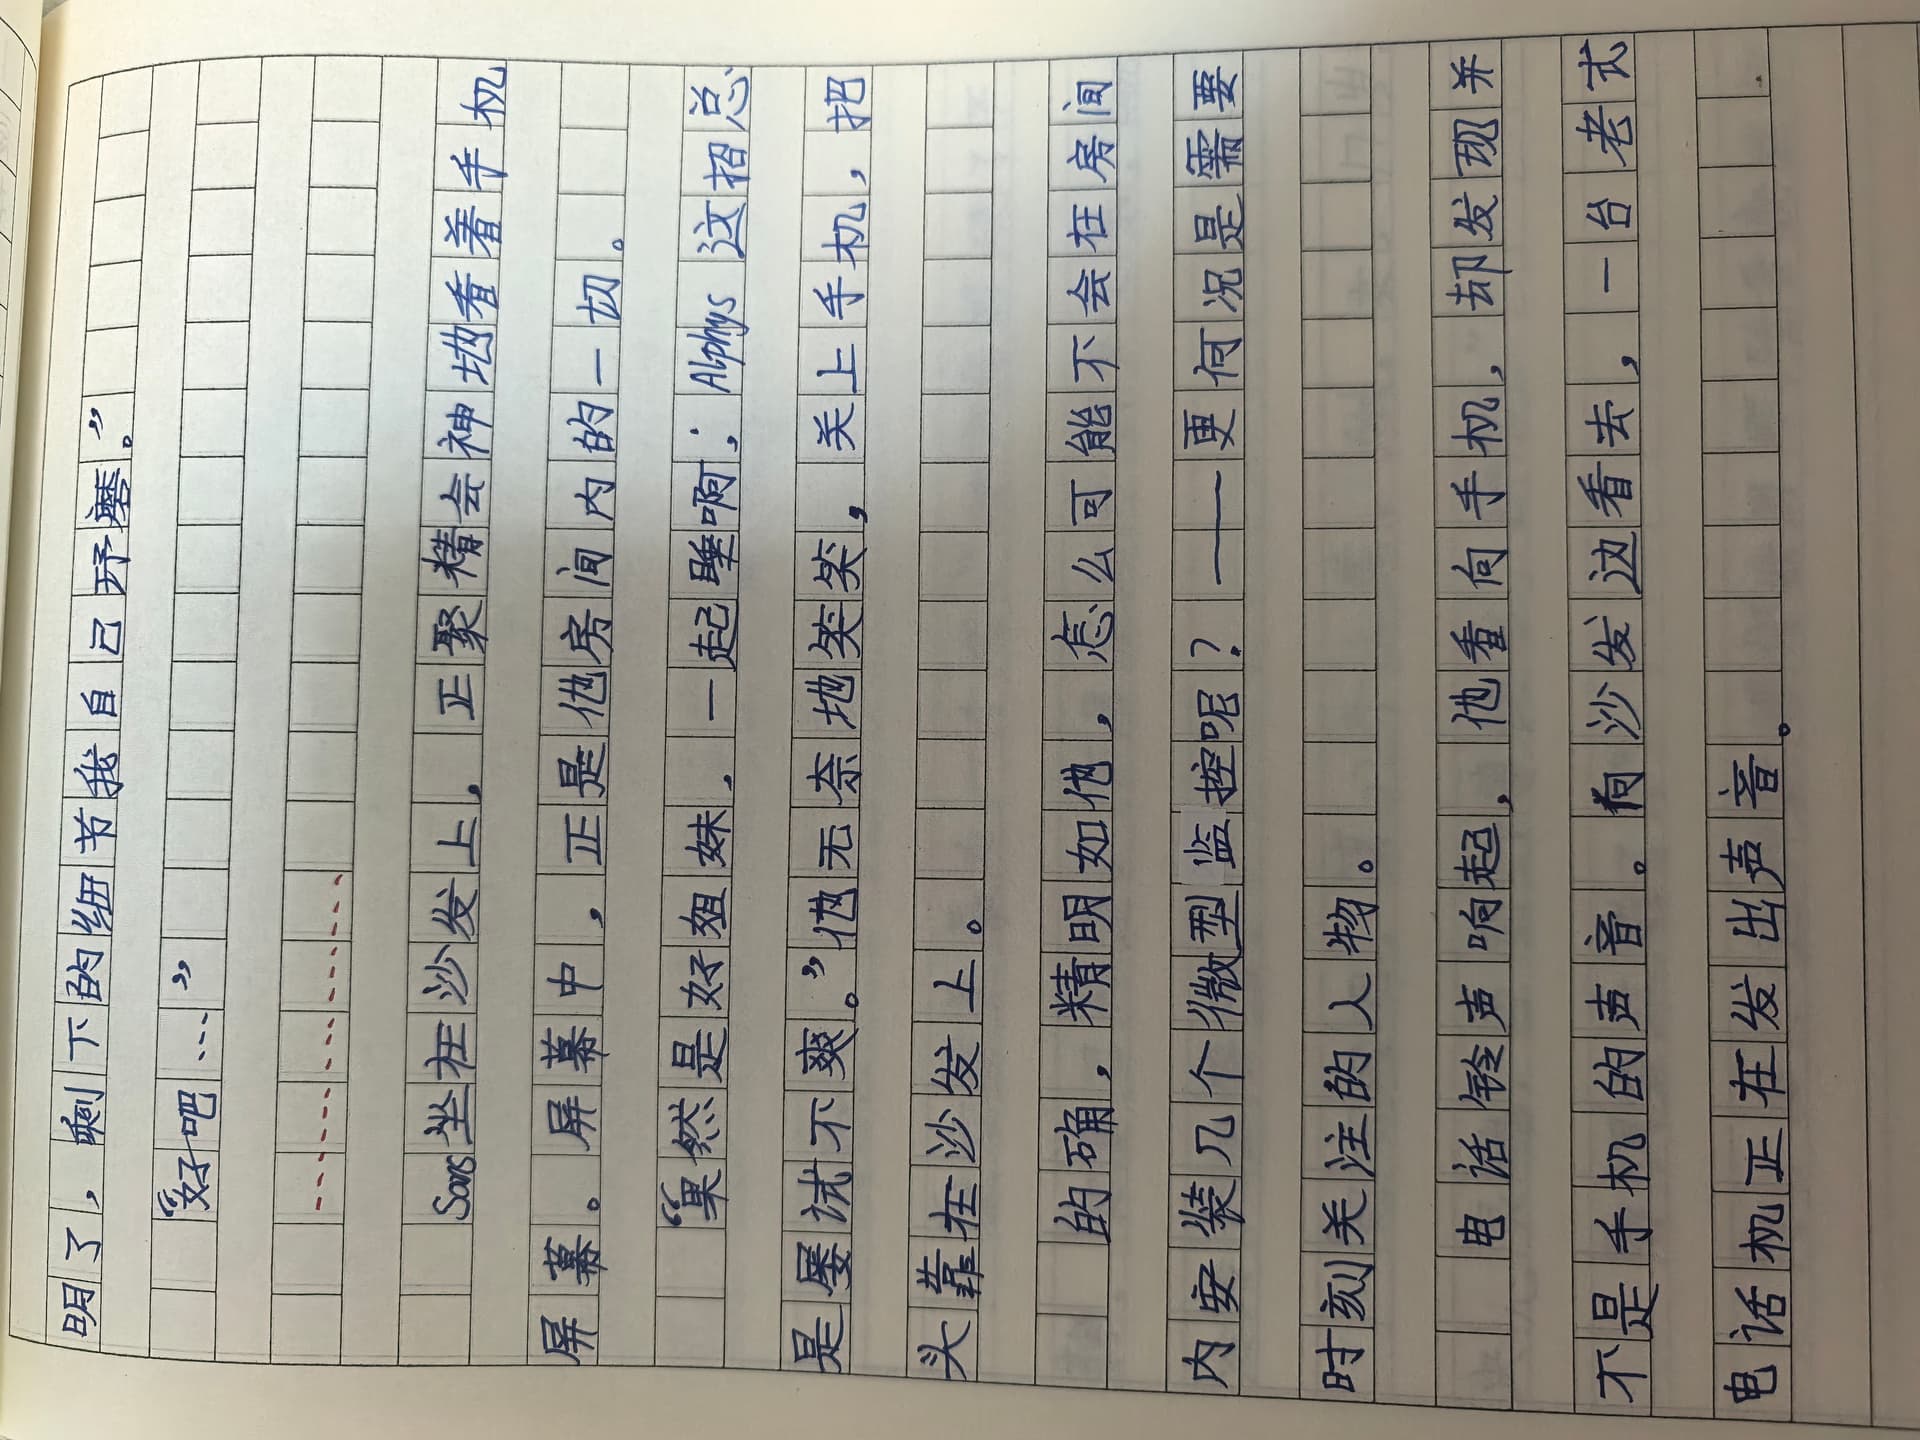 明了，剩下的细节我自己琢磨。”
“好吧……”
Sans坐在沙发上，正聚精会神地看着手机
屏幕。屏幕中，正是他房间内的一切。
“果然是好姐妹，一起睡啊；Alphys 这招总
是屡试不爽。”他无奈地笑笑，关上手机，把
头靠在沙发上。
的确，精明如他，怎么可能不会在房间
内安装几个微型监控呢？——更何况是需要
时刻关注的人物。
电话铃声响起，他看向手机，却发现并
不是手机的声音。向沙发边看去，一台老式
电话机正在发出声音。